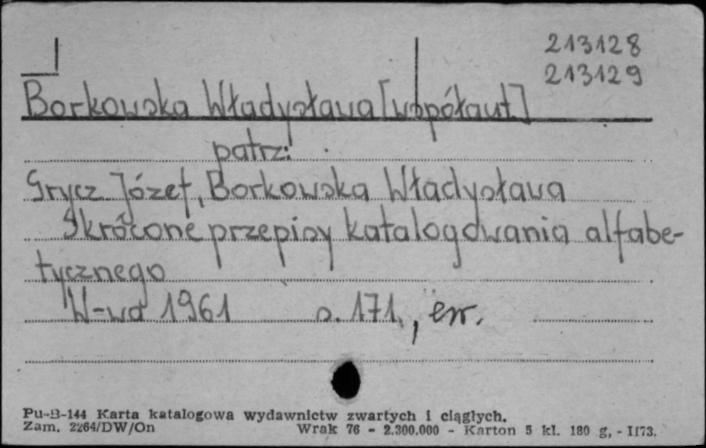 213128
213129
Borkowska Władysława [współaut.]
patrz:
Grycz Józef, Borkowska Władysława
Skrócone przepisy katalogowania alfabe-
tycznego
W-wa 1961 s. 171, err.
Pu-B-144 Karta katalogowa wydawnictw zwartych i ciągłych.
Zam. 2264/DW/On Wrak 76 - 2.300.000 - Karton 5 kl. 180 g, - II73.